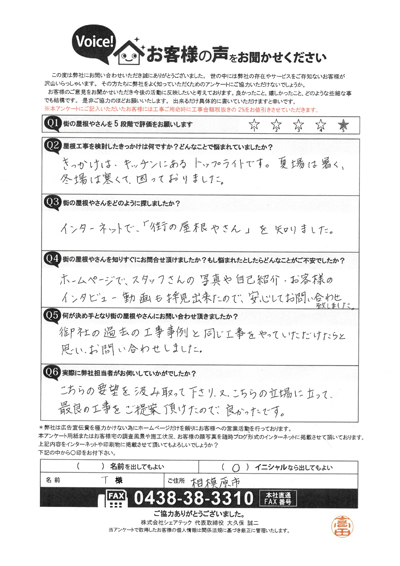 Voice!
お客様の声をお聞かせください
この度は弊社にお問い合わせいただき誠にありがとうございました。世の中には弊社の存在やサービスをご存知ないお客様が
沢山いらっしゃいます。その方たちに弊社をよく知っていただくためのアンケートにご協力いただけないでしょうか。
お客様のご意見をお聞かせいただき今後の活動に反映したいと考えております。良かったこと、嬉しかったこと、どのような些細な事
でも結構です。是非ご協力のほどお願いいたします。出来るだけ具体的に書いていただけますと幸いです。
※本アンケートにご記入いただいたお客様には工事ご依頼時に工事金額総額当の2%をお値引きさせていただきます。
Q1 街の屋根やさんを5段階で評価をお願いします ☆ ☆ ☆ ☆ ★
Q2 屋根工事を検討したきっかけは何ですか?どんなことで悩まれていましたか?
きっかけは、キッチンにあるトップライトです。夏場は暑く、
冬場は寒くて、困っておりました。
Q3 街の屋根やさんをどのように探しましたか?
インターネットで、「街の屋根やさん」を知りました。
Q4 街の屋根やさんを知りすぐにお問合せ頂けましたか?もし悩まれたとしたらどんなことがご不安でしたか?
ホームページで、スタッフさんの写真や自己紹介・お客様の
インタビュー動画も拝見出来たので、安心してお問い合わせ
致しました。
Q5 何が決め手となり街の屋根やさんにお問い合わせ頂きましたか?
御社の過去の工事事例と同じ工事をやっていただけたらと
思い、お問い合わせしました。
Q6 実際に弊社担当者がお伺いしていかがでしたか?
こちらの要望を汲み取って下さり、又、こちらの立場に立って、
最良の工事をご提案頂けたので、良かったです。
*弊社は広告宣伝費を極力かけない為にホームページだけを頼りにお客様への営業活動を行っております。
本アンケート用紙またはお客様宅の調査風景や施工状況、お客様の顔写真を随時ブログ形式のインターネットに掲載させて頂いております。
上記内容をインターネットや印刷物に掲載させて頂いてもよろしいでしょうか?
下記の中から○印をお付下さい。
( ) 名前を出してもよい ( ○ ) イニシャルなら出してもよい
名前 T 様 ご住所 相模原市
FAX 0438-38-3310 本社直通 FAX番号
ご協力ありがとうございました。
株式会社シェアテック 代表取締役 大久保 誠二
当アンケートで取得したお客様の個人情報は関係法規に基づき厳正に管理いたします。